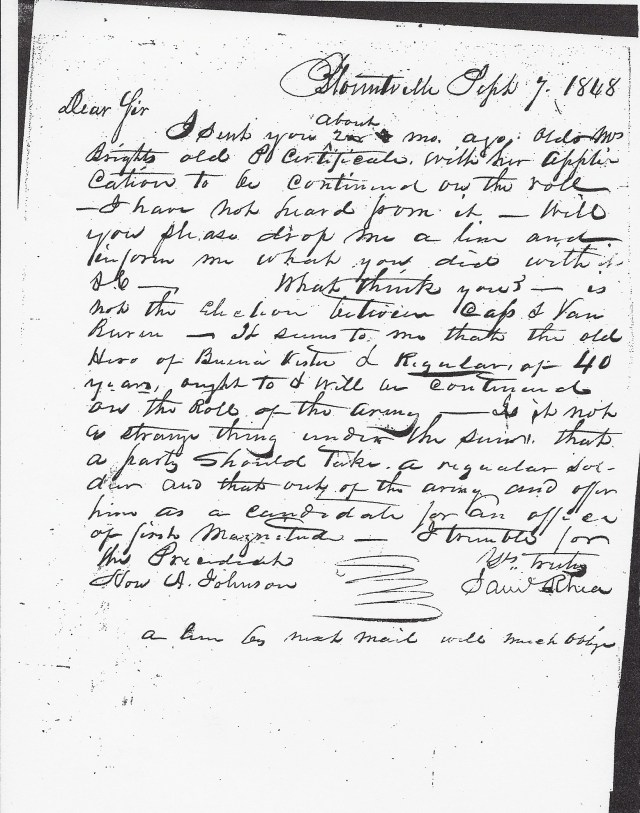 Blountville Sept 7. 1848
Dear Sir
about
I sent you mo. ago. old Mrs
Brights old P Certificate. with her Appli-
cation to be continued on the roll
— I have not heard from it — Will
you please drop me a line and
inform me what you did with it
&C — What think you? — is
not the Election between Cass & Van
Buren — It seems to me that the old
Hero of Buena Vista & Regular, of 40
years, ought to & will be continued
on the Roll of the army — Is it not
a strange thing under the sun, that
a party should take a regular Sol-
dier and that out of the army and offer
him as a candidate for an office
of first Magnitude — I tremble for
the Precedent Yrs. truly
Hon A. Johnson Saml Rhea
a line by next mail will much oblige